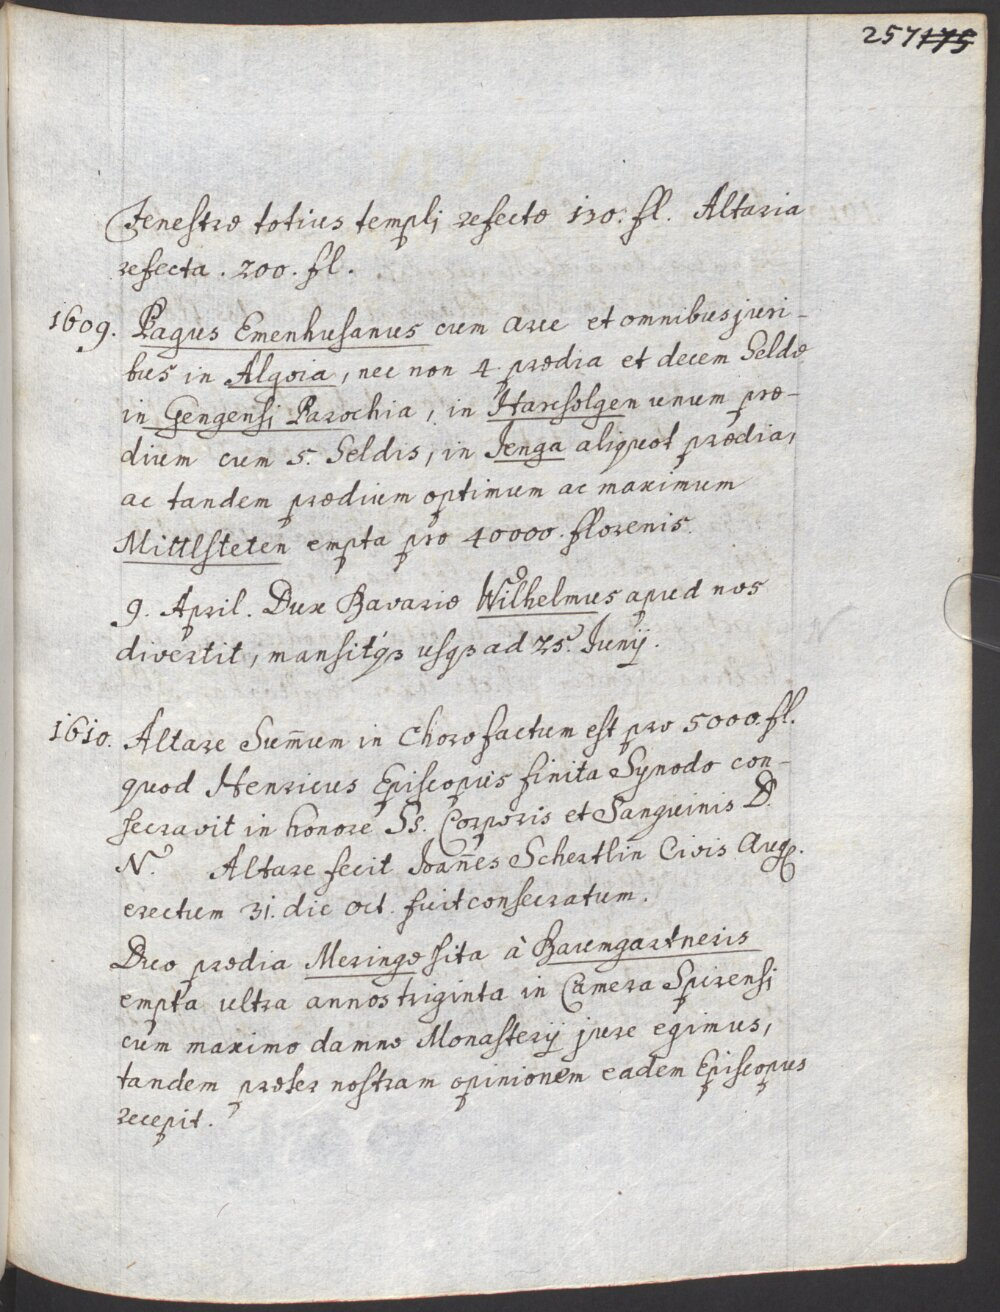 257 175
Fenestræ totius templi refectæ 120. fl. Altaria
refecta . 200. fl.
1609. Pagus Emenhusanus cum arce et omnibus juri-
bus in Algoia, nec non 4 prædia et decem Seldæ
in Gengensi Parochia, in Harssolgen unum præ-
dium cum 5. Seldis, in Jenga aliquot prædia,
ac tandem prædium optimum ac maximum
Mittlsteten empta pro 40000. florenis.
9. April. Dux Bavariæ Wilhelmus apud nos
divertit, mansitqz usqz ad 25. Junij.
1610. Altare Sum̄um in Choro factum est pro 5000. fl.
quod Henricus Episcopus finita Synodo con-
secravit in honore Ss. Corporis et Sanguinis D.
N. Altare fecit Joan̄es Schertlin Civis Aug.
erectum 31. die Oct. fuit consecratum.
Duo prædia Meringæ sita à Baumgartneris
empta ultra annos triginta in Camera Spirensi
cum maximo damno Monasterij jure egimus,
tandem præter nostram opinionem eadem Episcopus
recepit.